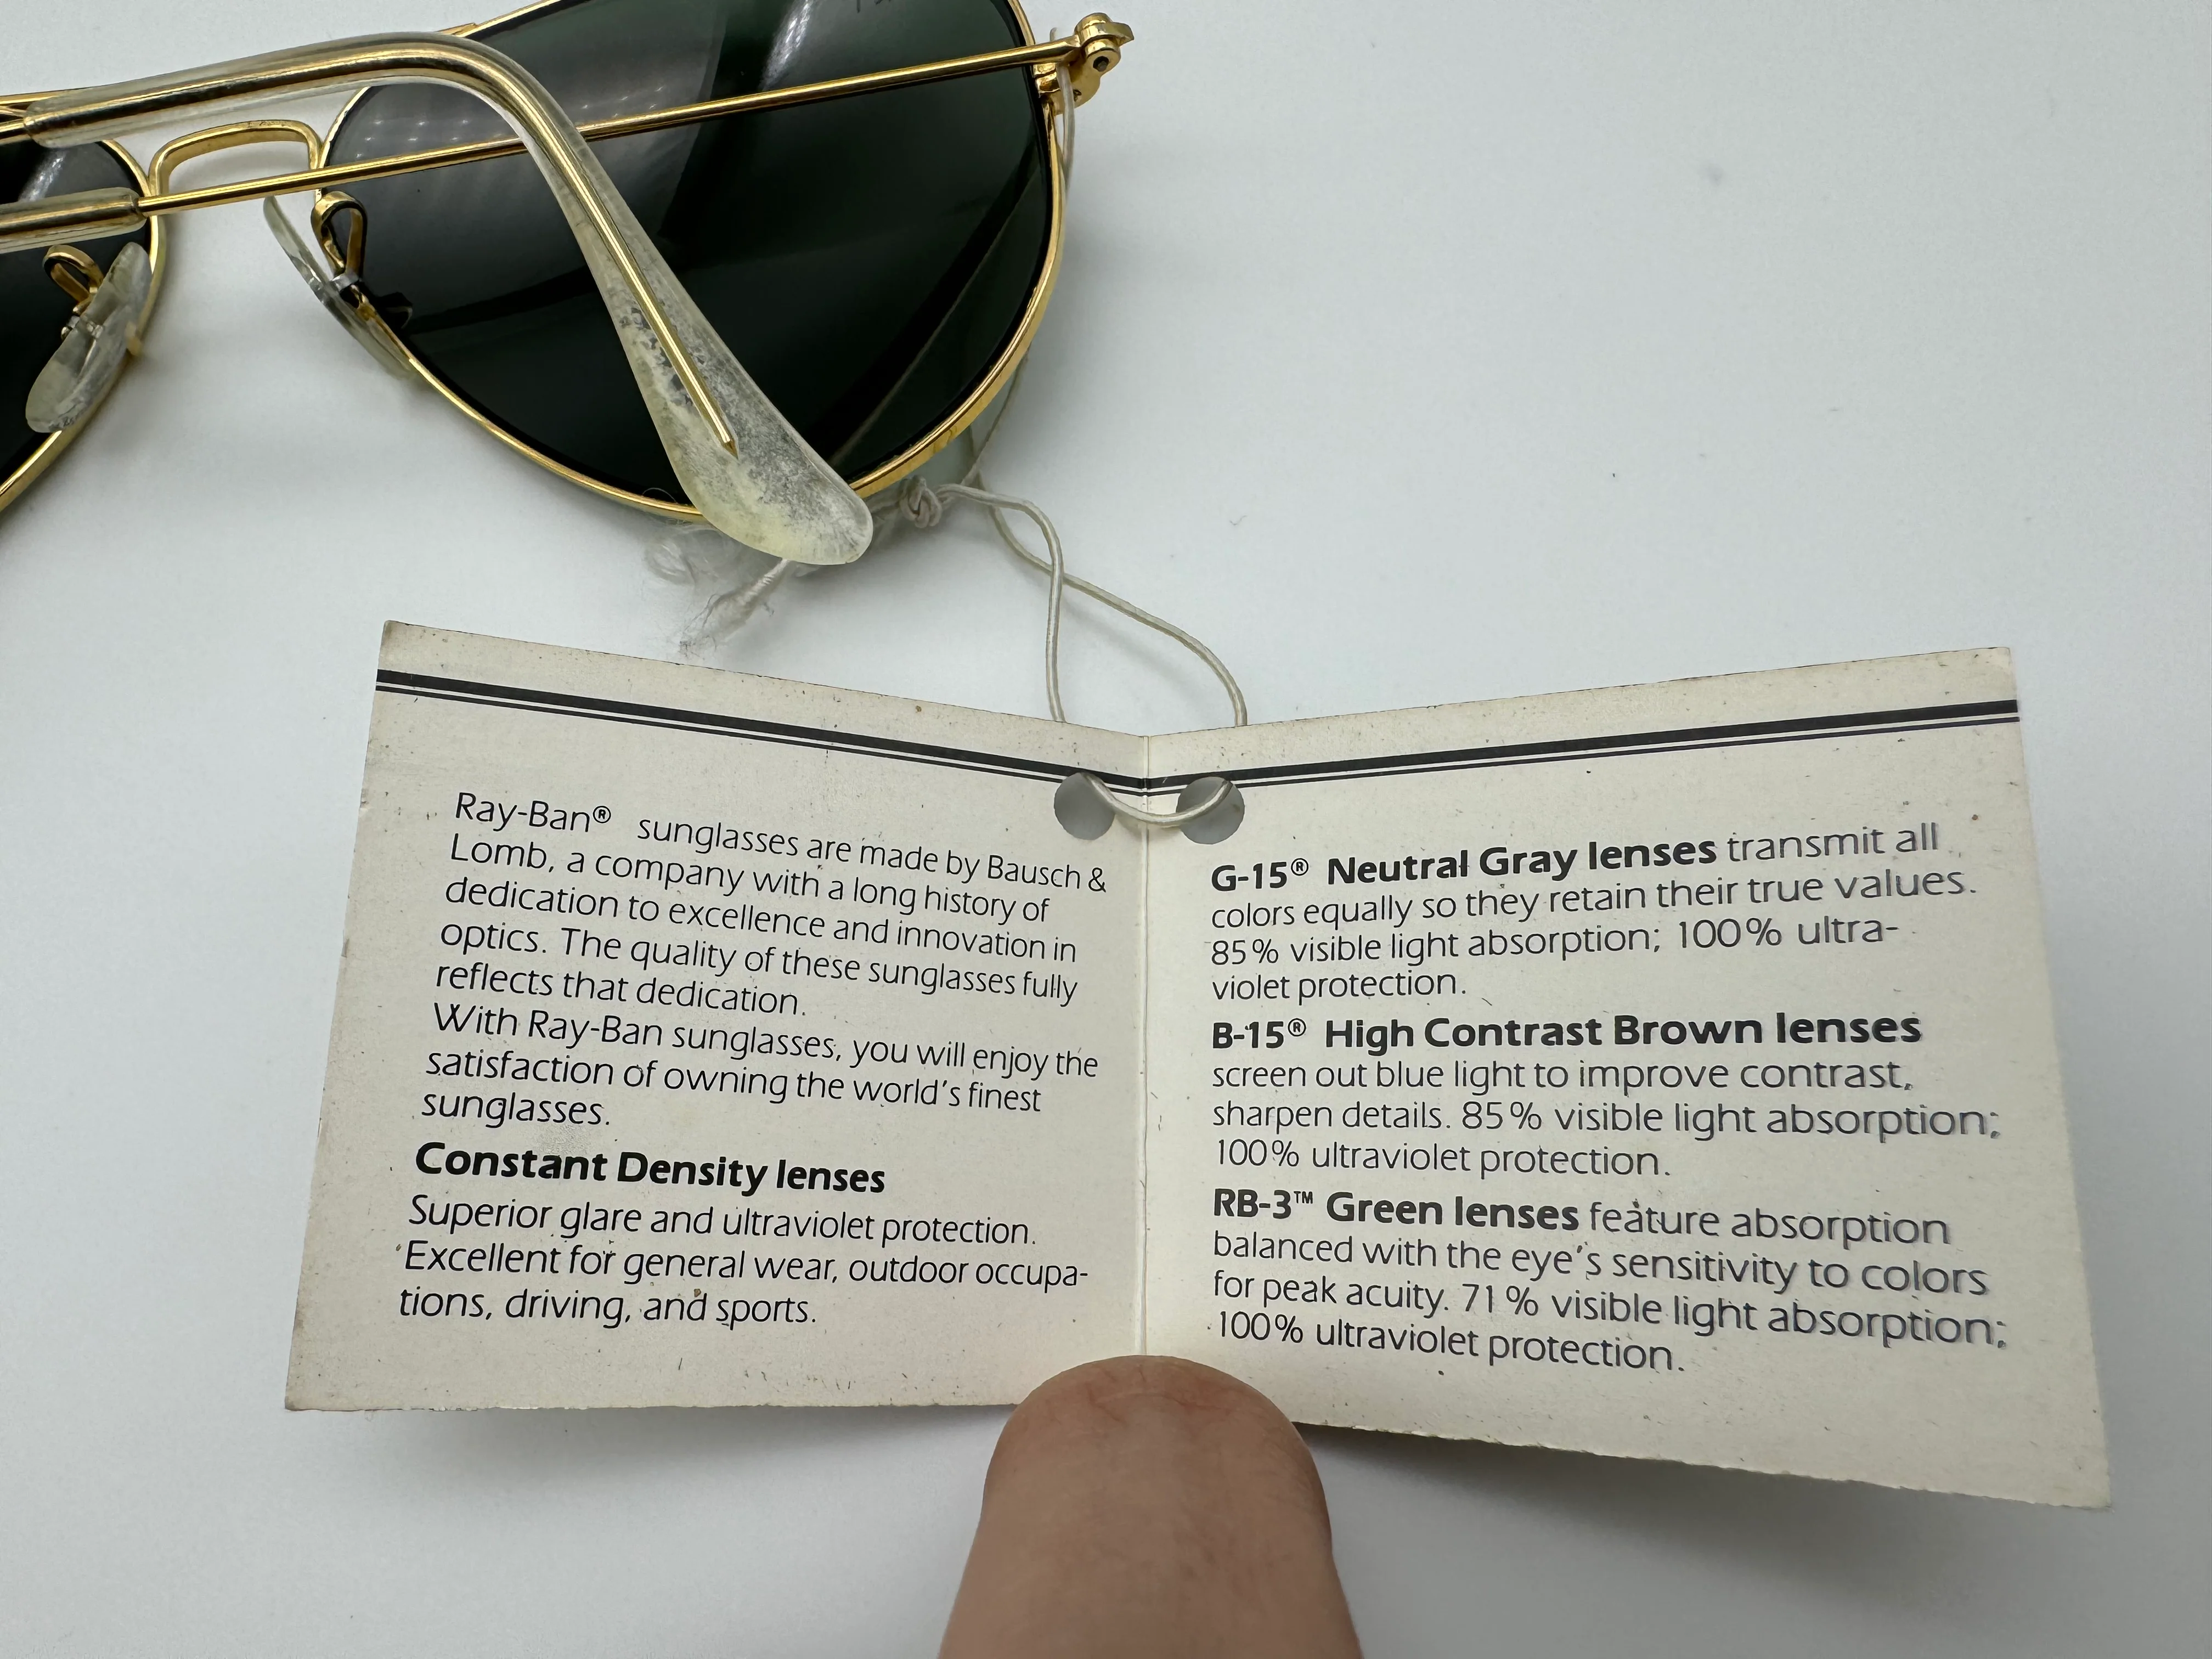 Ray-Ban® sunglasses are made by Bausch &
Lomb, a company with a long history of
dedication to excellence and innovation in
optics. The quality of these sunglasses fully
reflects that dedication.
With Ray-Ban sunglasses, you will enjoy the
satisfaction of owning the world's finest
sunglasses.
Constant Density lenses
Superior glare and ultraviolet protection.
Excellent for general wear, outdoor occupa-
tions, driving, and sports.
G-15® Neutral Gray lenses transmit all
colors equally so they retain their true values.
85% visible light absorption; 100% ultra-
violet protection.
B-15® High Contrast Brown lenses
screen out blue light to improve contrast,
sharpen details. 85% visible light absorption;
100% ultraviolet protection.
RB-3™ Green lenses feature absorption
balanced with the eye's sensitivity to colors
for peak acuity. 71% visible light absorption;
100% ultraviolet protection.